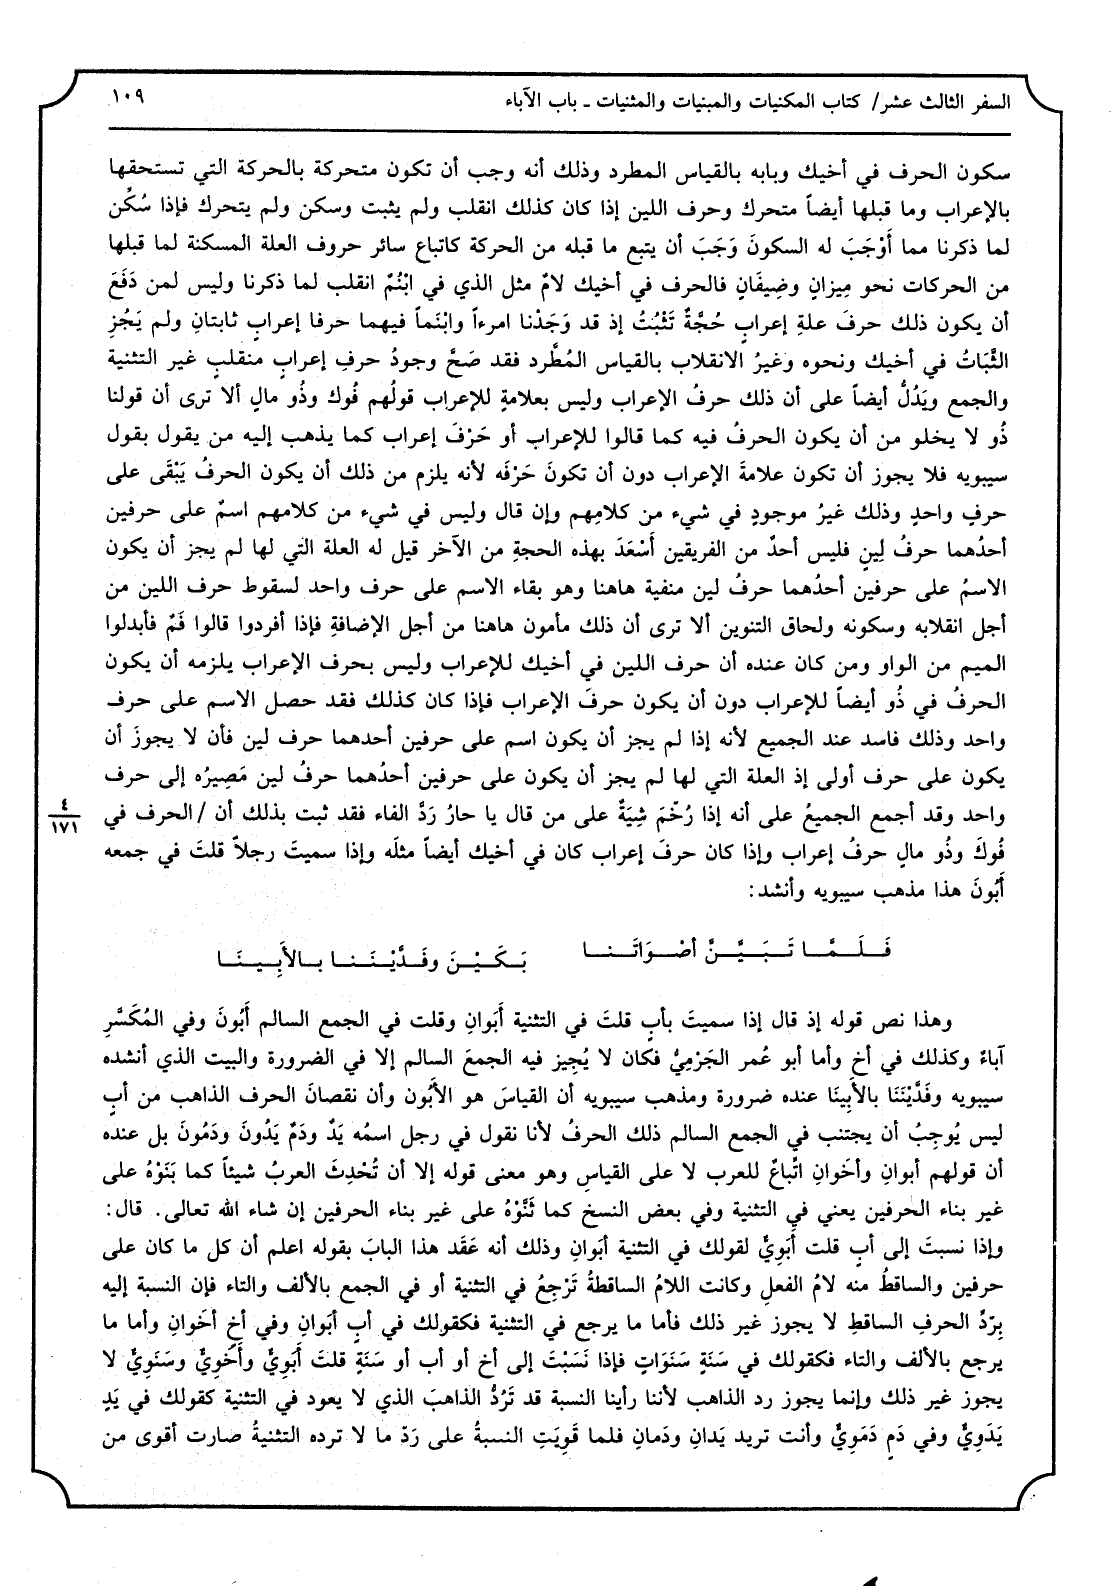 السفر الثالث عشر/ كتاب المكنيات والمبنيات والمثنيات ـ باب الآباء
١٠٩
سكون الحرف في أخيك وبابه بالقياس المطرد وذلك أنه وجب أن تكون متحركة بالحركة التي تستحقها
بالإعراب وما قبلها أيضاً متحرك وحرف اللين إذا كان كذلك انقلب ولم يثبت وسكن ولم يتحرك فإذا سُكِّن
لما ذكرنا مما أَوْجَبَ له السكونَ وَجَبَ أن يتبع ما قبله من الحركة كاتباع سائر حروف العلة المسكنة لما قبلها
من الحركات نحو مِيزانٍ وضِيفَانٍ فالحرف في أخيك لامٌ مثل الذي في ابْنُمٌ انقلب لما ذكرنا وليس لمن دَفَعَ
أن يكون ذلك حرفَ علةِ إعرابٍ حُجَّةٌ تَثْبُتُ إذ قد وَجَدْنا امرءاً وابْنَماً فيهما حرفا إعرابٍ ثابتانِ ولم يَجُزِ
الثَّبَاتُ في أخيك ونحوه وغيرُ الانقلاب بالقياس المُطَّرد فقد صَحَّ وجودُ حرفِ إعرابٍ منقلبٍ غير التثنية
والجمع ويَدُلُّ أيضاً على أن ذلك حرفُ الإعراب وليس بعلامةٍ للإعراب قولُهم فُوك وذُو مالٍ ألا ترى أن قولنا
ذُو لا يخلو من أن يكون الحرفُ فيه كما قالوا للإعراب أو حَرْفَ إعراب كما يذهب إليه من يقول بقول
سيبويه فلا يجوز أن تكون علامةَ الإعراب دون أن تكونَ حَرْفَه لأنه يلزم من ذلك أن يكون الحرفُ يَبْقَى على
حرفٍ واحدٍ وذلك غيرُ موجودٍ في شيء من كلامِهم وإن قال وليس في شيء من كلامهم اسمٌ على حرفين
أحدُهما حرفُ لِينٍ فليس أحدٌ من الفريقين أَسْعَدَ بهذه الحجةِ من الآخر قيل له العلة التي لها لم يجز أن يكون
الاسمُ على حرفين أحدُهما حرفُ لين منفية هاهنا وهو بقاء الاسم على حرف واحد لسقوط حرف اللين من
أجل انقلابه وسكونه ولحاق التنوين ألا ترى أن ذلك مأمون هاهنا من أجل الإضافةِ فإذا أفردوا قالوا فَمٌ فأبدلوا
الميم من الواو ومن كان عنده أن حرف اللين في أخيك للإعراب وليس بحرف الإعراب يلزمه أن يكون
الحرفُ في ذُو أيضاً للإعراب دون أن يكون حرفَ الإعراب فإذا كان كذلك فقد حصل الاسم على حرف
واحد وذلك فاسد عند الجميع لأنه إذا لم يجز أن يكون اسم على حرفين أحدهما حرف لين فأن لا يجوزَ أن
يكون على حرف أولى إذ العلة التي لها لم يجز أن يكون على حرفين أحدُهما حرفُ لين مَصِيرُه إلى حرف
واحد وقد أجمع الجميعُ على أنه إذا رُخِّمَ شِيَةٌ على من قال يا حارُ رَدَّ الفاء فقد ثبت بذلك أن /الحرف في
٤
١٧١
فُوكَ وذُو مالٍ حرفُ إعراب وإذا كان حرفَ إعراب كان في أخيك أيضاً مثلَه وإذا سميتَ رجلاً قلتَ في جمعه
أَبُونَ هذا مذهب سيبويه وأنشد:
فَـلَـمَّـا تَـبَـيَّـنَّ أصْـوَاتَـنـا بَـكَـيْـنَ وفَـدَّيْـنَـنـا بـالأَبِـيـنَـا
وهذا نص قوله إذ قال إذا سميتَ بأبٍ قلتَ في التثنية أَبَوانِ وقلت في الجمع السالم أَبُونَ وفي المُكَسَّرِ
آباءٌ وكذلك في أخ وأما أبو عُمر الجَرْمِيُّ فكان لا يُجِيز فيه الجمعَ السالم إلا في الضرورة والبيت الذي أنشده
سيبويه وفَدَّيْنَنَا بالأَبِينَا عنده ضرورة ومذهب سيبويه أن القياسَ هو الأَبُون وأن نقصانَ الحرف الذاهب من أبٍ
ليس يُوجِبُ أن يجتنب في الجمع السالم ذلك الحرفُ لأنا نقول في رجل اسمُه يَدٌ ودَمٌ يَدُونَ ودَمُونَ بل عنده
أن قولهم أبوانِ وأخَوانِ اتِّباعٌ للعرب لا على القياسِ وهو معنى قوله إلا أن تُحْدِثَ العربُ شيئاً كما بَنَوْهُ على
غير بناء الحرفين يعني في التثنية وفي بعض النسخ كما ثَنَّوْهُ على غير بناء الحرفين إن شاء الله تعالى. قال:
وإذا نسبتَ إلى أبٍ قلت أَبَوِيٌّ لقولك في التثنية أبَوانِ وذلك أنه عَقَد هذا البابَ بقوله اعلم أن كل ما كان على
حرفين والساقطُ منه لامُ الفعلِ وكانت اللامُ الساقطةُ تَرْجِعُ في التثنية أو في الجمع بالألف والتاء فإن النسبة إليه
بِرَدِّ الحرفِ الساقطِ لا يجوز غير ذلك فأما ما يرجع في التثنية فكقولك في أبٍ أبَوانِ وفي أخٍ أخَوانِ وأما ما
يرجع بالألف والتاء فكقولك في سَنَةٍ سَنَوَاتٍ فإذا نَسَبْتَ إلى أخ أو أب أو سَنَةٍ قلتَ أَبَوِيٌّ وأَخَوِيٌّ وسَنَوِيٌّ لا
يجوز غير ذلك وإنما يجوز رد الذاهب لأننا رأينا النسبة قد تَرُدُّ الذاهبَ الذي لا يعود في التثنية كقولك في يَدٍ
يَدَوِيٌّ وفي دَمٍ دَمَوِيٌّ وأنت تريد يَدانِ ودَمانِ فلما قَوِيَتِ النسبةُ على رَدّ ما لا ترده التثنيةُ صارت أقوى من